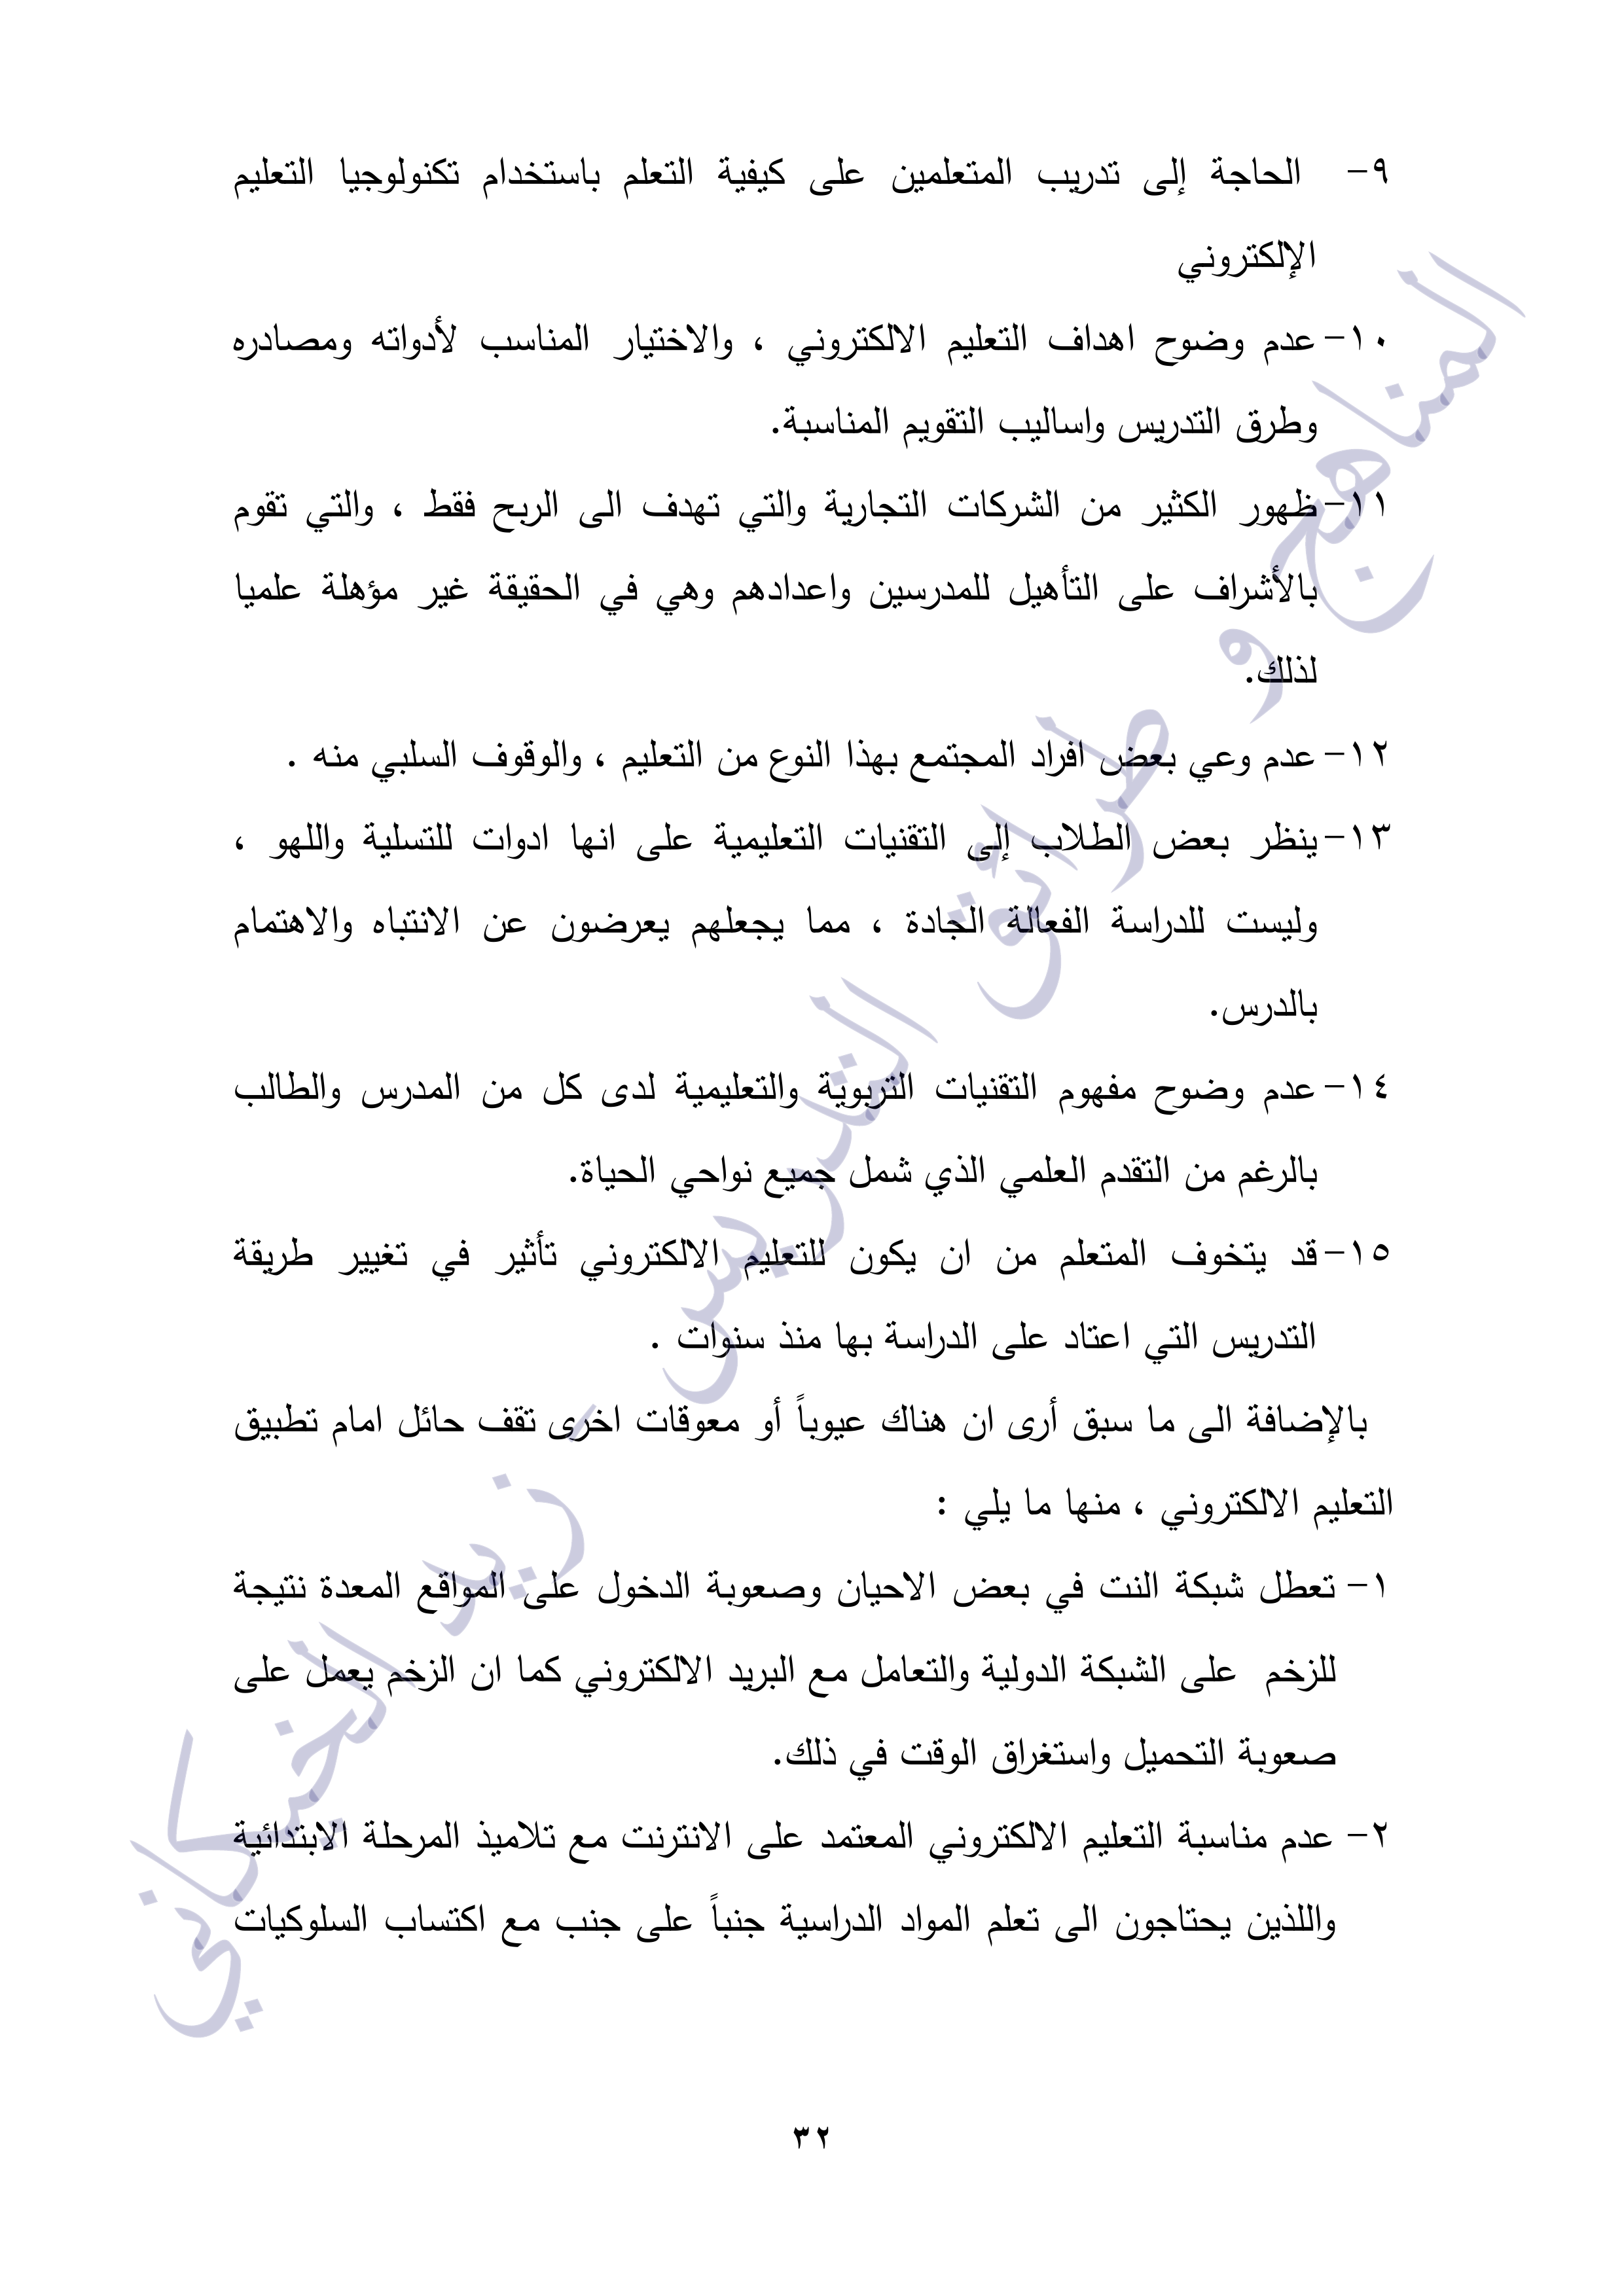 ٩- الحاجة إلى تدريب المتعلمين على كيفية التعلم باستخدام تكنولوجيا التعليم
الإلكتروني
١٠- عدم وضوح اهداف التعليم الالكتروني ، والاختيار المناسب لأدواته ومصادره
وطرق التدريس واساليب التقويم المناسبة.
١١- ظهور الكثير من الشركات التجارية والتي تهدف الى الربح فقط ، والتي تقوم
بالأشراف على التأهيل للمدرسين واعدادهم وهي في الحقيقة غير مؤهلة علميا
لذلك.
١٢- عدم وعي بعض افراد المجتمع بهذا النوع من التعليم ، والوقوف السلبي منه .
١٣- ينظر بعض الطلاب إلى التقنيات التعليمية على انها ادوات للتسلية واللهو ،
وليست للدراسة الفعالة الجادة ، مما يجعلهم يعرضون عن الانتباه والاهتمام
بالدرس.
١٤- عدم وضوح مفهوم التقنيات التربوية والتعليمية لدى كل من المدرس والطالب
بالرغم من التقدم العلمي الذي شمل جميع نواحي الحياة.
١٥- قد يتخوف المتعلم من ان يكون للتعليم الالكتروني تأثير في تغيير طريقة
التدريس التي اعتاد على الدراسة بها منذ سنوات .
بالإضافة الى ما سبق أرى ان هناك عيوباً أو معوقات اخرى تقف حائل امام تطبيق
التعليم الالكتروني ، منها ما يلي :
١- تعطل شبكة النت في بعض الاحيان وصعوبة الدخول على المواقع المعدة نتيجة
للزخم على الشبكة الدولية والتعامل مع البريد الالكتروني كما ان الزخم يعمل على
صعوبة التحميل واستغراق الوقت في ذلك.
٢- عدم مناسبة التعليم الالكتروني المعتمد على الانترنت مع تلاميذ المرحلة الابتدائية
واللذين يحتاجون الى تعلم المواد الدراسية جنباً على جنب مع اكتساب السلوكيات
٣٢
المناهج و طرائق التدريس - زيد الخيكاني